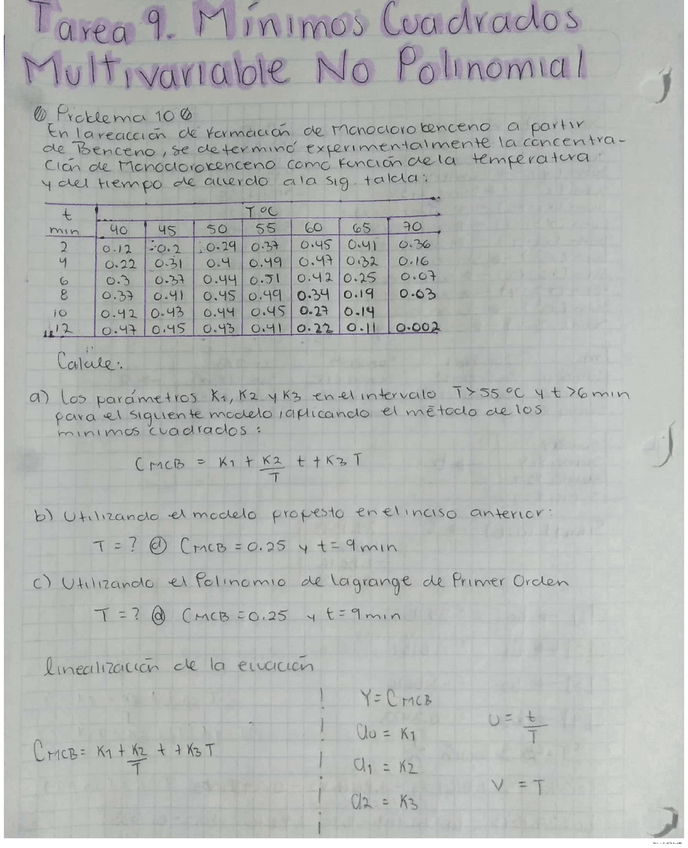 Tarea 9. Mínimos Cuadrados
Multivariable No Polinomial
Problema 10
En la reacción de formación de Monoclorobenceno a partir
de Benceno, se determinó experimentalmente la concentra-
ción de Monoclorobenceno como función de la temperatura
y del tiempo de acuerdo a la sig tabla:
t T °C
min 40 45 50 55 60 65 70
2 0.12 0.2 0.29 0.37 0.45 0.41 0.36
4 0.22 0.31 0.4 0.49 0.47 0.32 0.16
6 0.3 0.37 0.44 0.51 0.42 0.25 0.07
8 0.37 0.41 0.45 0.49 0.34 0.19 0.03
10 0.42 0.43 0.44 0.45 0.27 0.14
12 0.47 0.45 0.43 0.41 0.22 0.11 0.002
Calcule:
a) Los parámetros K1, K2 y K3 en el intervalo T>55 °C y t>6 min
para el siguiente modelo, aplicando el método de los
mínimos cuadrados:
CMCB = K1 + K2/T t + K3 T
b) Utilizando el modelo propesto en el inciso anterior:
T = ? @ CMCB = 0.25 y t = 9 min
c) Utilizando el Polinomio de Lagrange de Primer Orden
T = ? @ CMCB = 0.25 y t = 9 min
linealización de la ecuación
CMCB = K1 + K2/T t + K3 T
Y = CMCB
a0 = K1
a1 = K2
a2 = K3
U = t/T
V = T